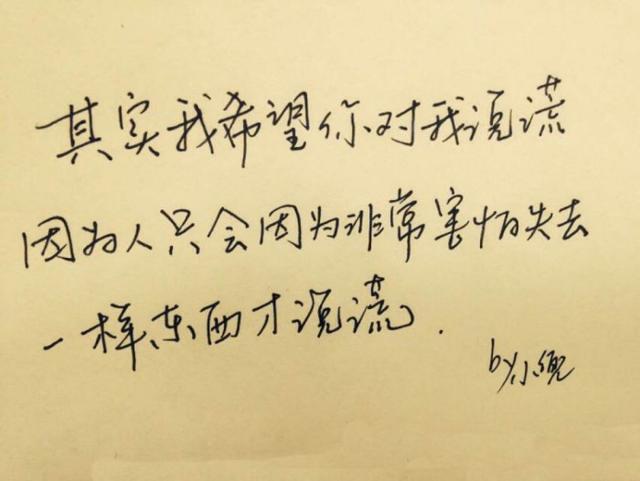 其实我希望你对我说谎
因为人只会因为非常害怕失去
一样东西才说谎.
by小兜